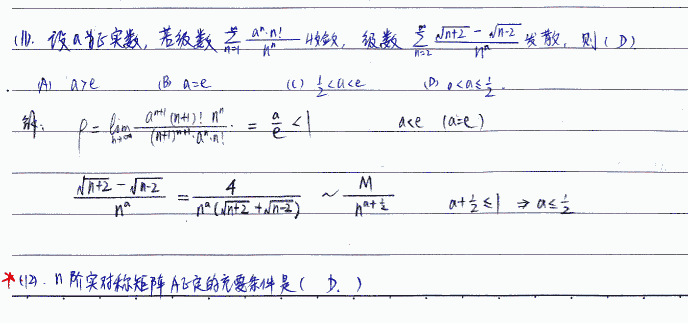 (11). 设a为正实数, 若级数 \sum_{n=1}^{\infty} \frac{a^n \cdot n!}{n^n} 收敛, 级数 \sum_{n=2}^{\infty} \frac{\sqrt{n+2} - \sqrt{n-2}}{n^a} 发散, 则 ( D )
(A) a>e (B) a=e (C) \frac{1}{2}<a<e (D) 0<a≤\frac{1}{2}.
解: ρ = \lim_{n→∞} \frac{a^{n+1} (n+1)! n^n}{(n+1)^{n+1} \cdot a^n \cdot n!} = \frac{a}{e} < 1 a<e (a=e)
\frac{\sqrt{n+2} - \sqrt{n-2}}{n^a} = \frac{4}{n^a (\sqrt{n+2} + \sqrt{n-2})} ~ \frac{M}{n^{a+\frac{1}{2}}} a+\frac{1}{2} ≤ 1 ⇒ a≤\frac{1}{2}
*(12). n阶实对称矩阵A正定的充要条件是 ( D. )